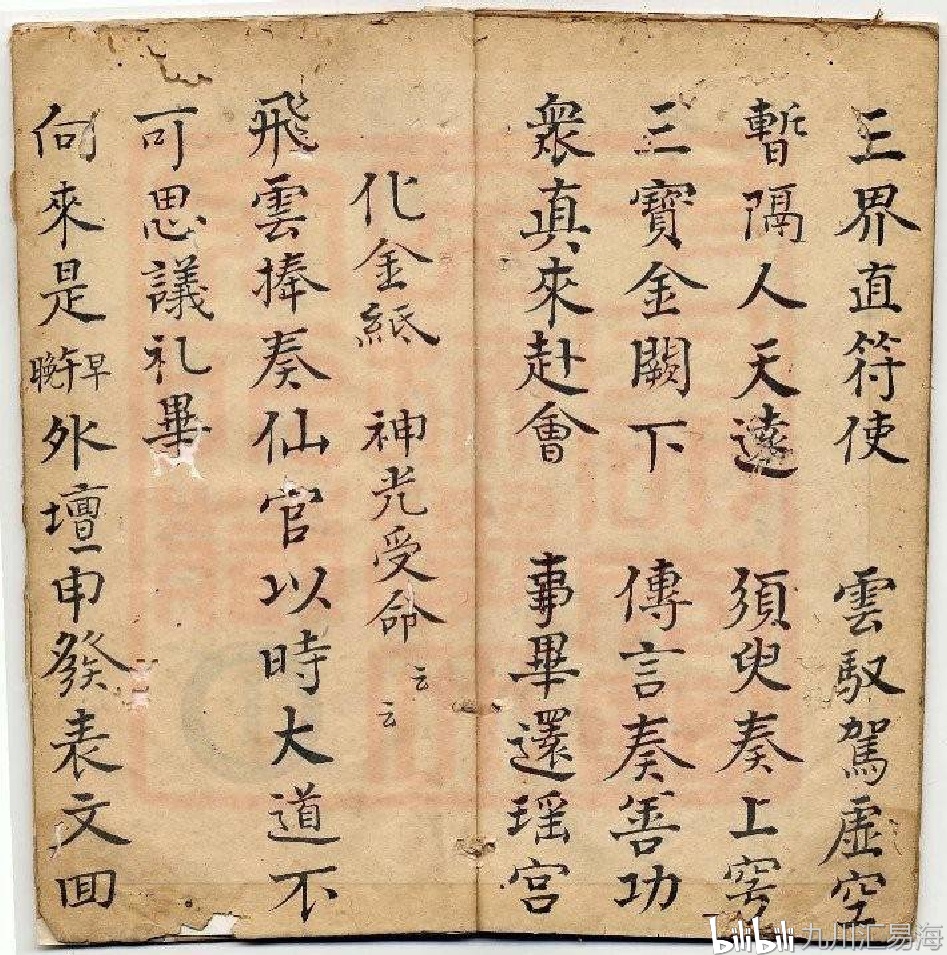 三界直符使 雲馭駕虛空
暫隔人天遠 須臾奏上穹
三寶金闕下 傳言奏善功
衆真來赴會 事畢還瑶宮
化金紙 神光受命云云
飛雲捧奏仙官以時大道不
可思議礼畢
向來是早午晚外壇申發表文回
bilibili 九川汇易海